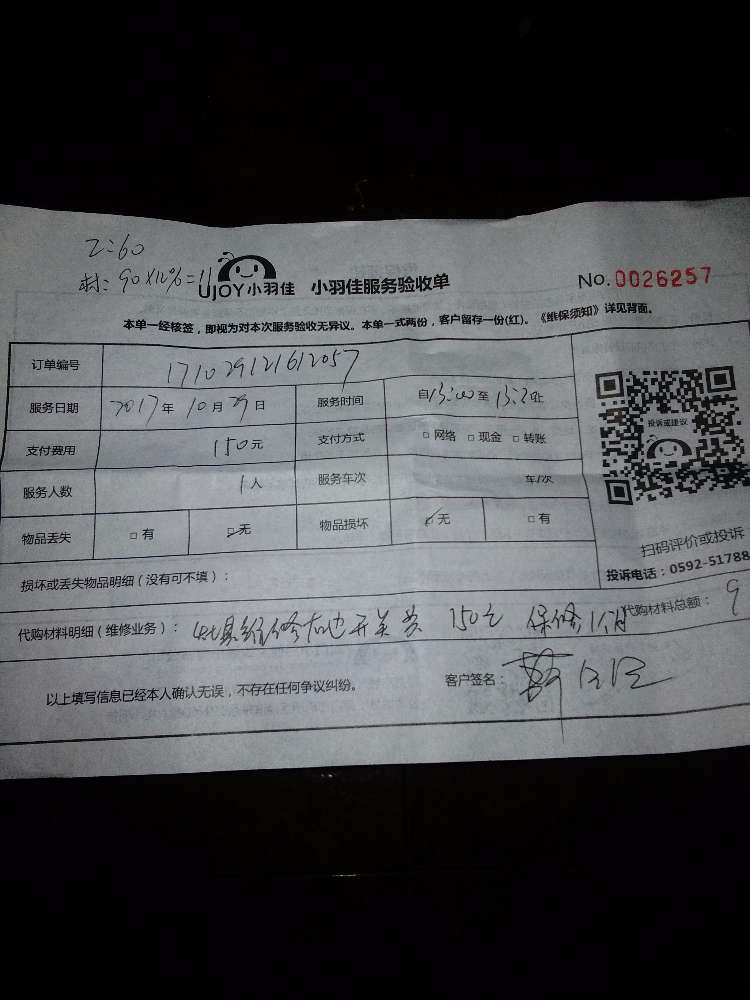 工:60
材:90×12%=11
UJOY小羽佳 小羽佳服务验收单 No.0026257
本单一经核签，即视为对本次服务验收无异议。本单一式两份，客户留存一份(红)。《维保须知》详见背面。
订单编号 171029121612057
服务日期 2017年10月29日 服务时间 自13:00至13:20止
支付费用 150元 支付方式 □网络 □现金 □转账
服务人数 1人 服务车次 车/次
物品丢失 □有 ☑无 物品损坏 ☑无 □有
投诉或建议
扫码评价或投诉
投诉电话：0592-51788
损坏或丢失物品明细（没有可不填）：
代购材料明细（维修业务）： 维修 开关 150元 保修1 代购材料总额：9
以上填写信息已经本人确认无误，不存在任何争议纠纷。 客户签名：